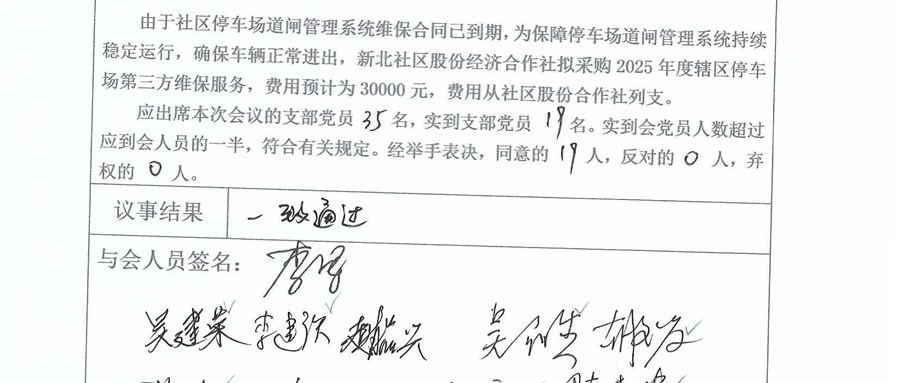 由于社区停车场道闸管理系统维保合同已到期，为保障停车场道闸管理系统持续
稳定运行，确保车辆正常进出，新北社区股份经济合作社拟采购 2025 年度辖区停车
场第三方维保服务，费用预计为 30000 元，费用从社区股份合作社列支。
应出席本次会议的支部党员 35 名，实到支部党员 19 名。实到会党员人数超过
应到会人员的一半，符合有关规定。经举手表决，同意的 19 人，反对的 0 人，弃
权的 0 人。
议事结果 一致通过
与会人员签名：
吴建荣 李建欣